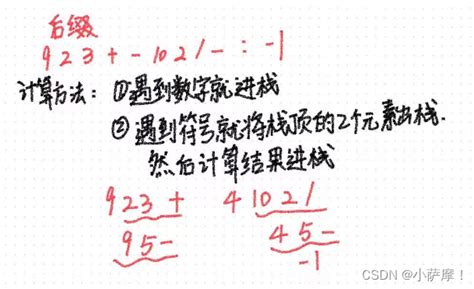 后缀
9 2 3 + - 10 2 / - : -1
计算方法: ①遇到数字就进栈
②遇到符号就将栈顶的2个元素出栈.
然后计算结果进栈
9 2 3 + 4 10 2 /
9 5 - 4 5 -
-1
CSDN @小萨摩!